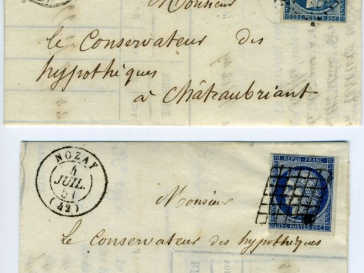 Monsieur
le Conservateur des
hypothèques
à Châteaubriant
NOZAY
4
JUIL.
51
(42)
REPUB. FRANC.
Monsieur
le Conservateur des hypothèques